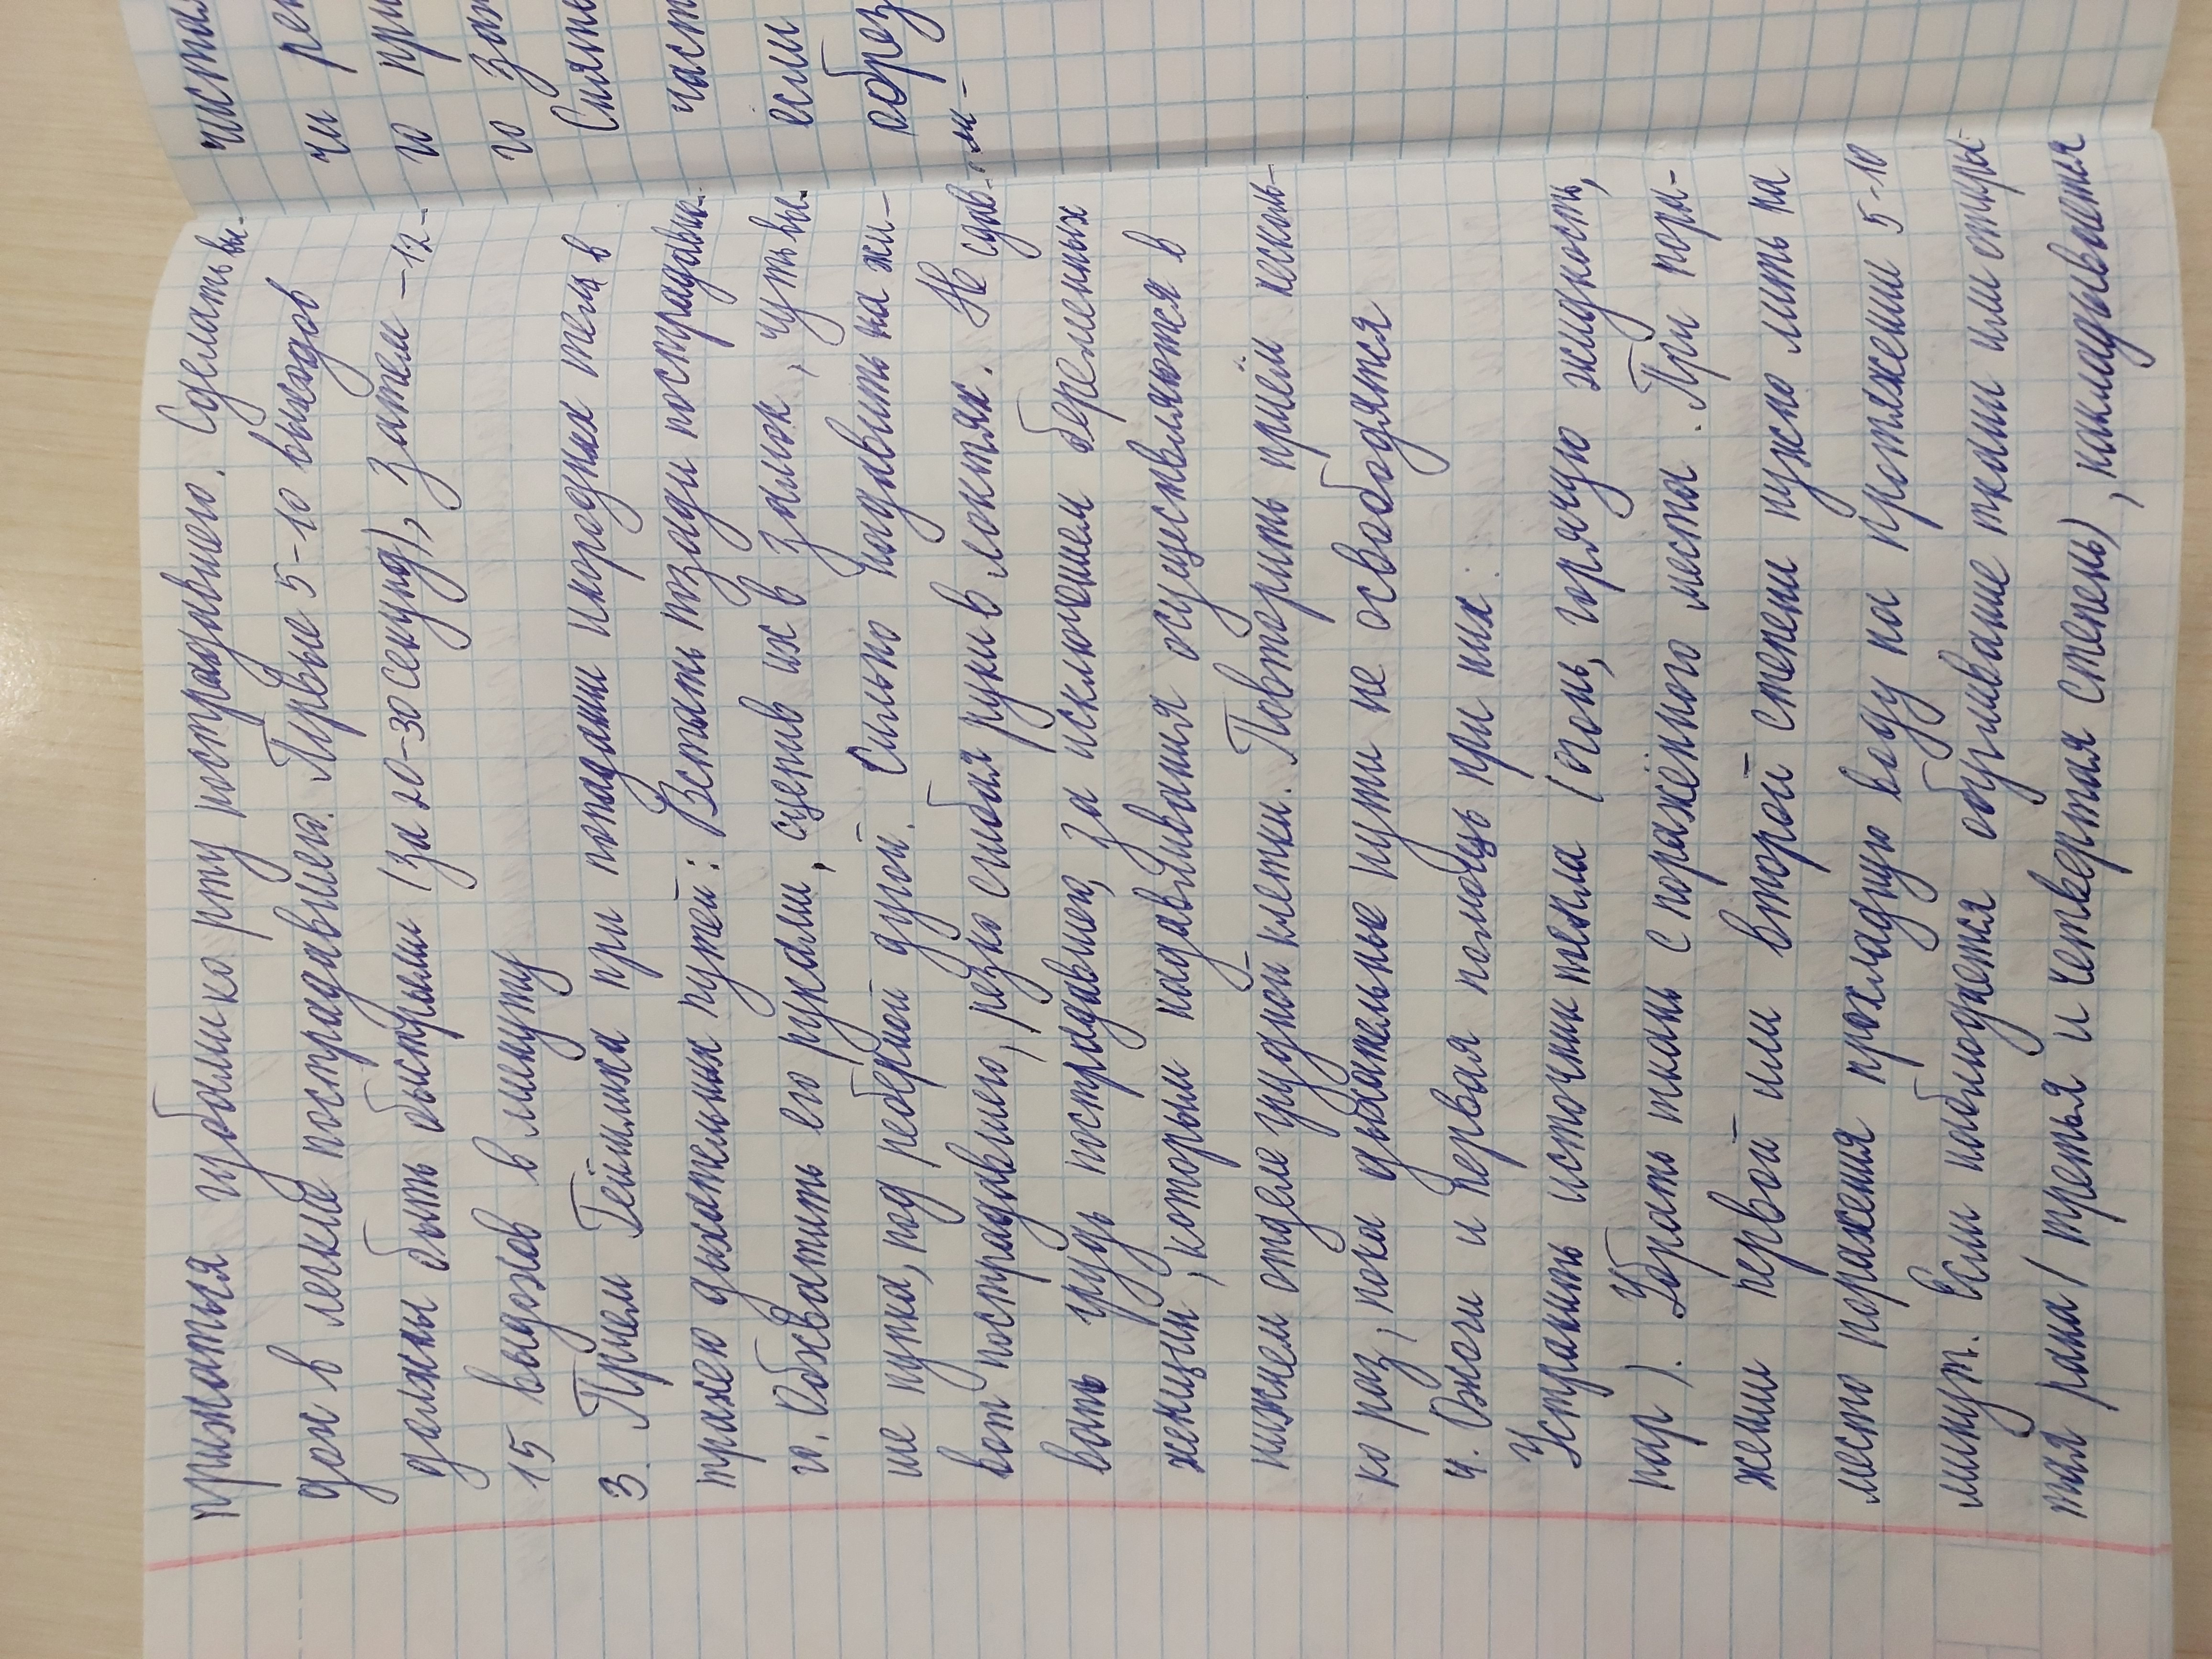 прижатья губами ко рту пострадавшего. Сделать вы-
дох в легкие пострадавшего. Первые 5-10 выходов
должны быть быстрыми (за 20-30 секунд), Затем -12-
15 выдохов в минуту
3. Прием Геймлиха при попадании инородных тел в
трахею дыхательных путей: Встать позади пострадавше-
го. Обхватить его руками, сцепив их в замок, чуть вы-
ше пупка, под реберной дугой. Сильно надавить на жи-
вот пострадавшего, резко сгибая руки в локтях. Не сдав-
вать грудь пострадавшего, за исключением беременных
женщин, которым надавливания осуществляются в
нижнем отделе грудной клетки. Повторить приём несколь-
ко раз, пока дыхательные пути не освободятся
4. Ожоги и первая помощь при них:
Устранить источник тепла (огонь, горячую жидкость,
пар). Убрать ткань с поражённого места. При пора-
жении первой или второй степени нужно лить на
место поражения прохладную воду на протяжении 5-10
минут. Если наблюдается обугливание ткани или откры-
тая рана (третья и четвертая степень), накладывается
чистая
чи ре
го при
го за
Сняти
част
если
образ